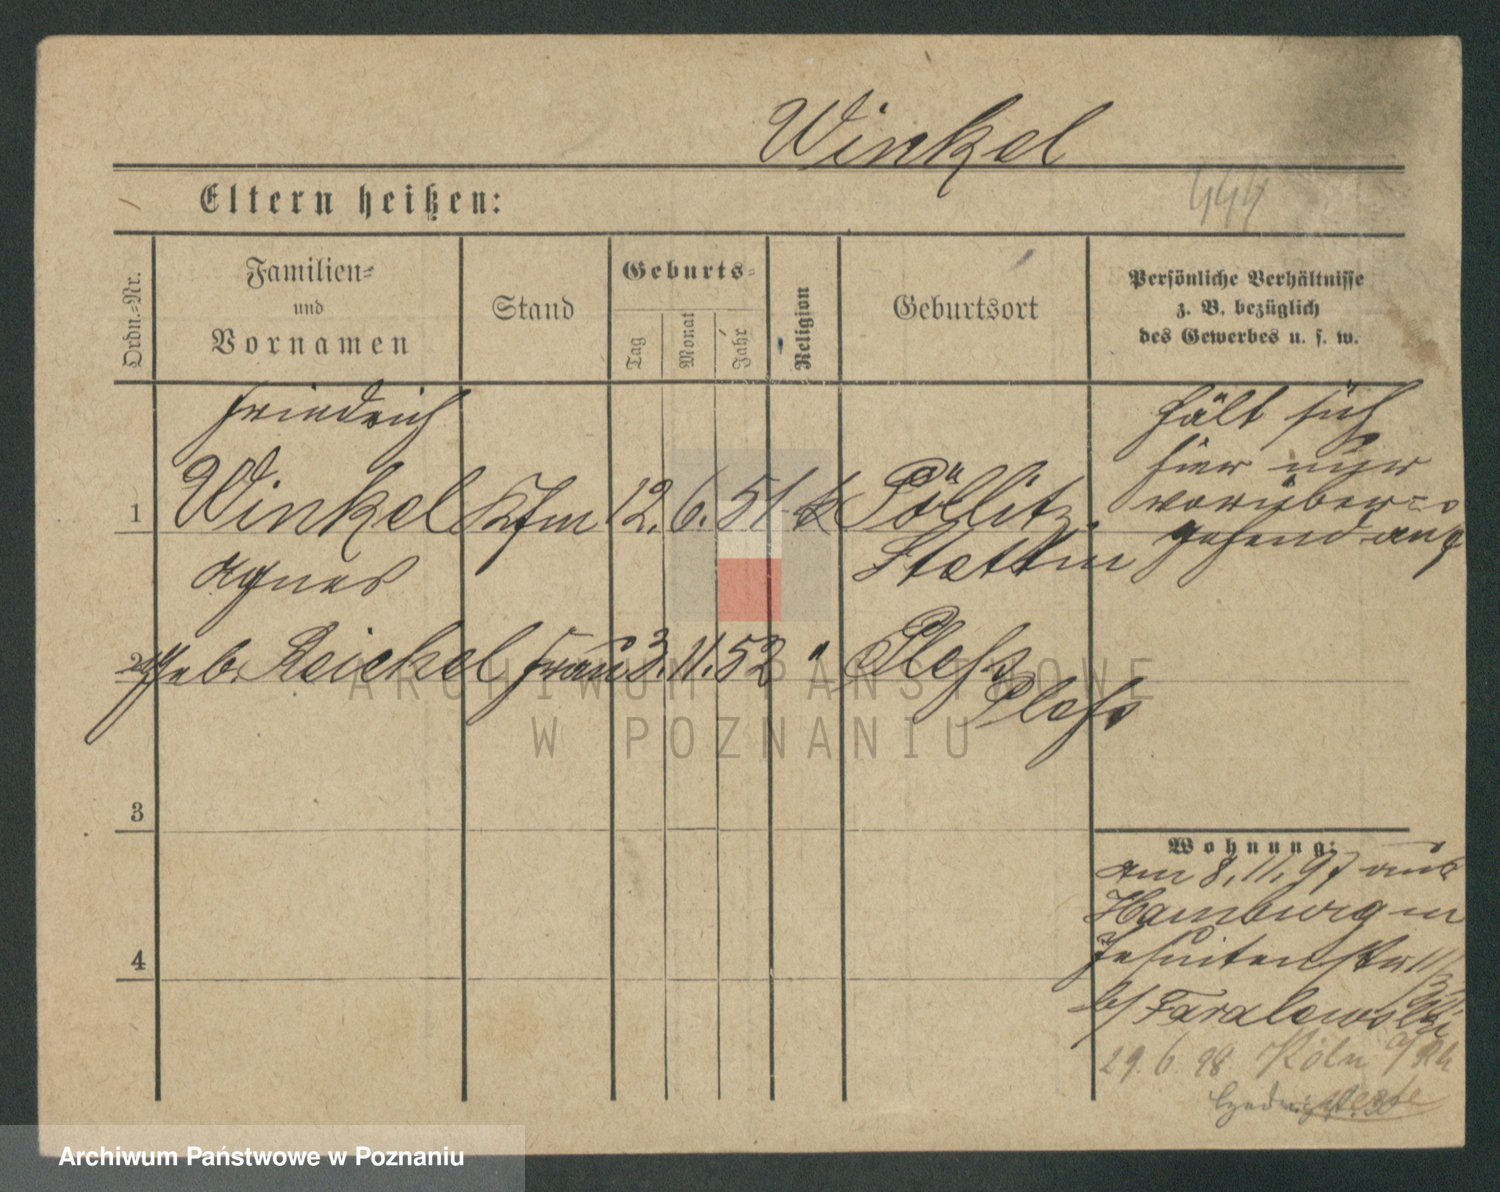 Winkel
444
Eltern heißen:
Ordn.=Nr.
Familien=
und
Vornamen
Stand
Geburts=
Tag
Monat
Jahr
Religion
Geburtsort
Persönliche Verhältnisse
z. B. bezüglich
des Gewerbes u. s. w.
Friedrich
1 Winkel Kfm 12. 6. 51 k Pöllitz
Stettin
hält sich
hier nur
vorüber=
gehend auf
Agnes
2 geb. Reichel Frau 3. 11. 52 " Pless
Pless
3
4
Wohnung:
am 8. 11. 97 aus
Hamburg in
Jesuitenstr 11
b/ Taralewski
29. 6. 98 Köln a/Rh
ARCHIWUM PAŃSTWOWE
W POZNANIU
Archiwum Państwowe w Poznaniu